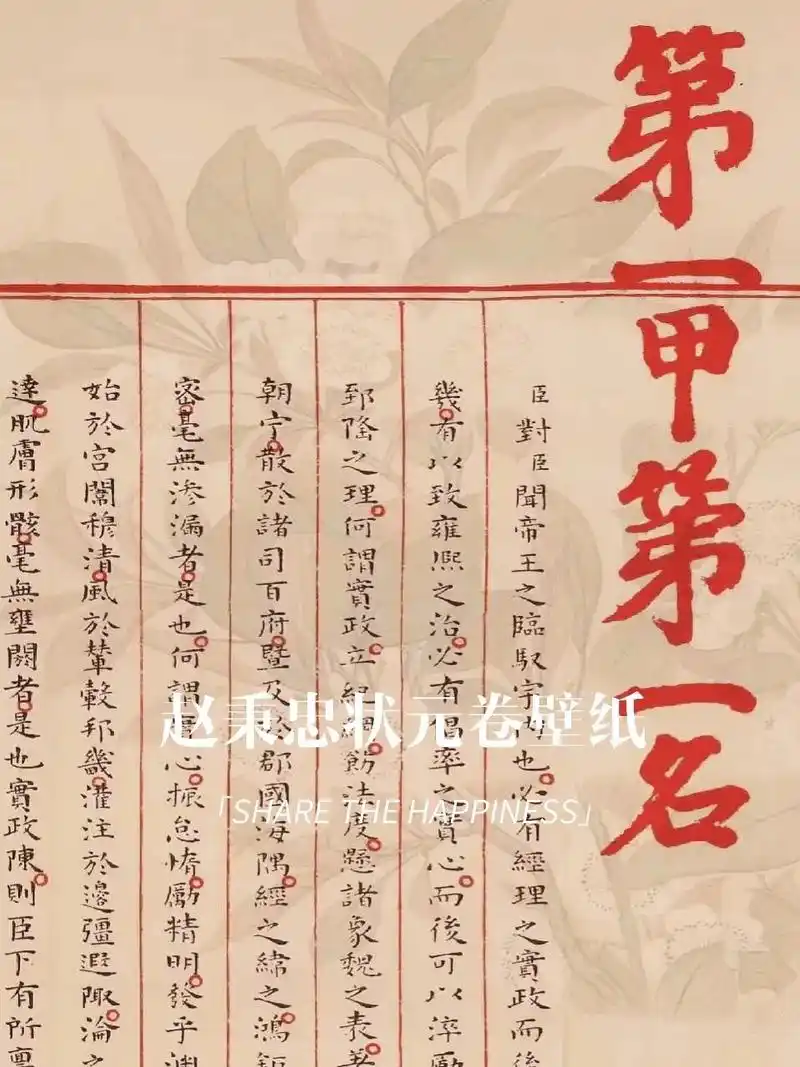 第一甲第一名
臣對臣聞帝王之臨馭宇内也必有經理之實政而後
幾有以致雍熙之治必有倡率之實心而後可以淬勵
郅隆之理何謂實政立紀綱飭法度懸諸象魏之表著
朝宁散於諸司百府暨及於郡國海隅經之緯之鴻鉅
密毫無滲漏者是也何謂實心振怠惰勵精明發乎淵
始於宮闈穆清風於輦轂邦畿灌注於邊疆遐陬淪之
達肌膚形骸毫無壅閼者是也實政陳則臣下有所稟
赵秉忠状元卷壁纸
「SHARE THE HAPPINESS」